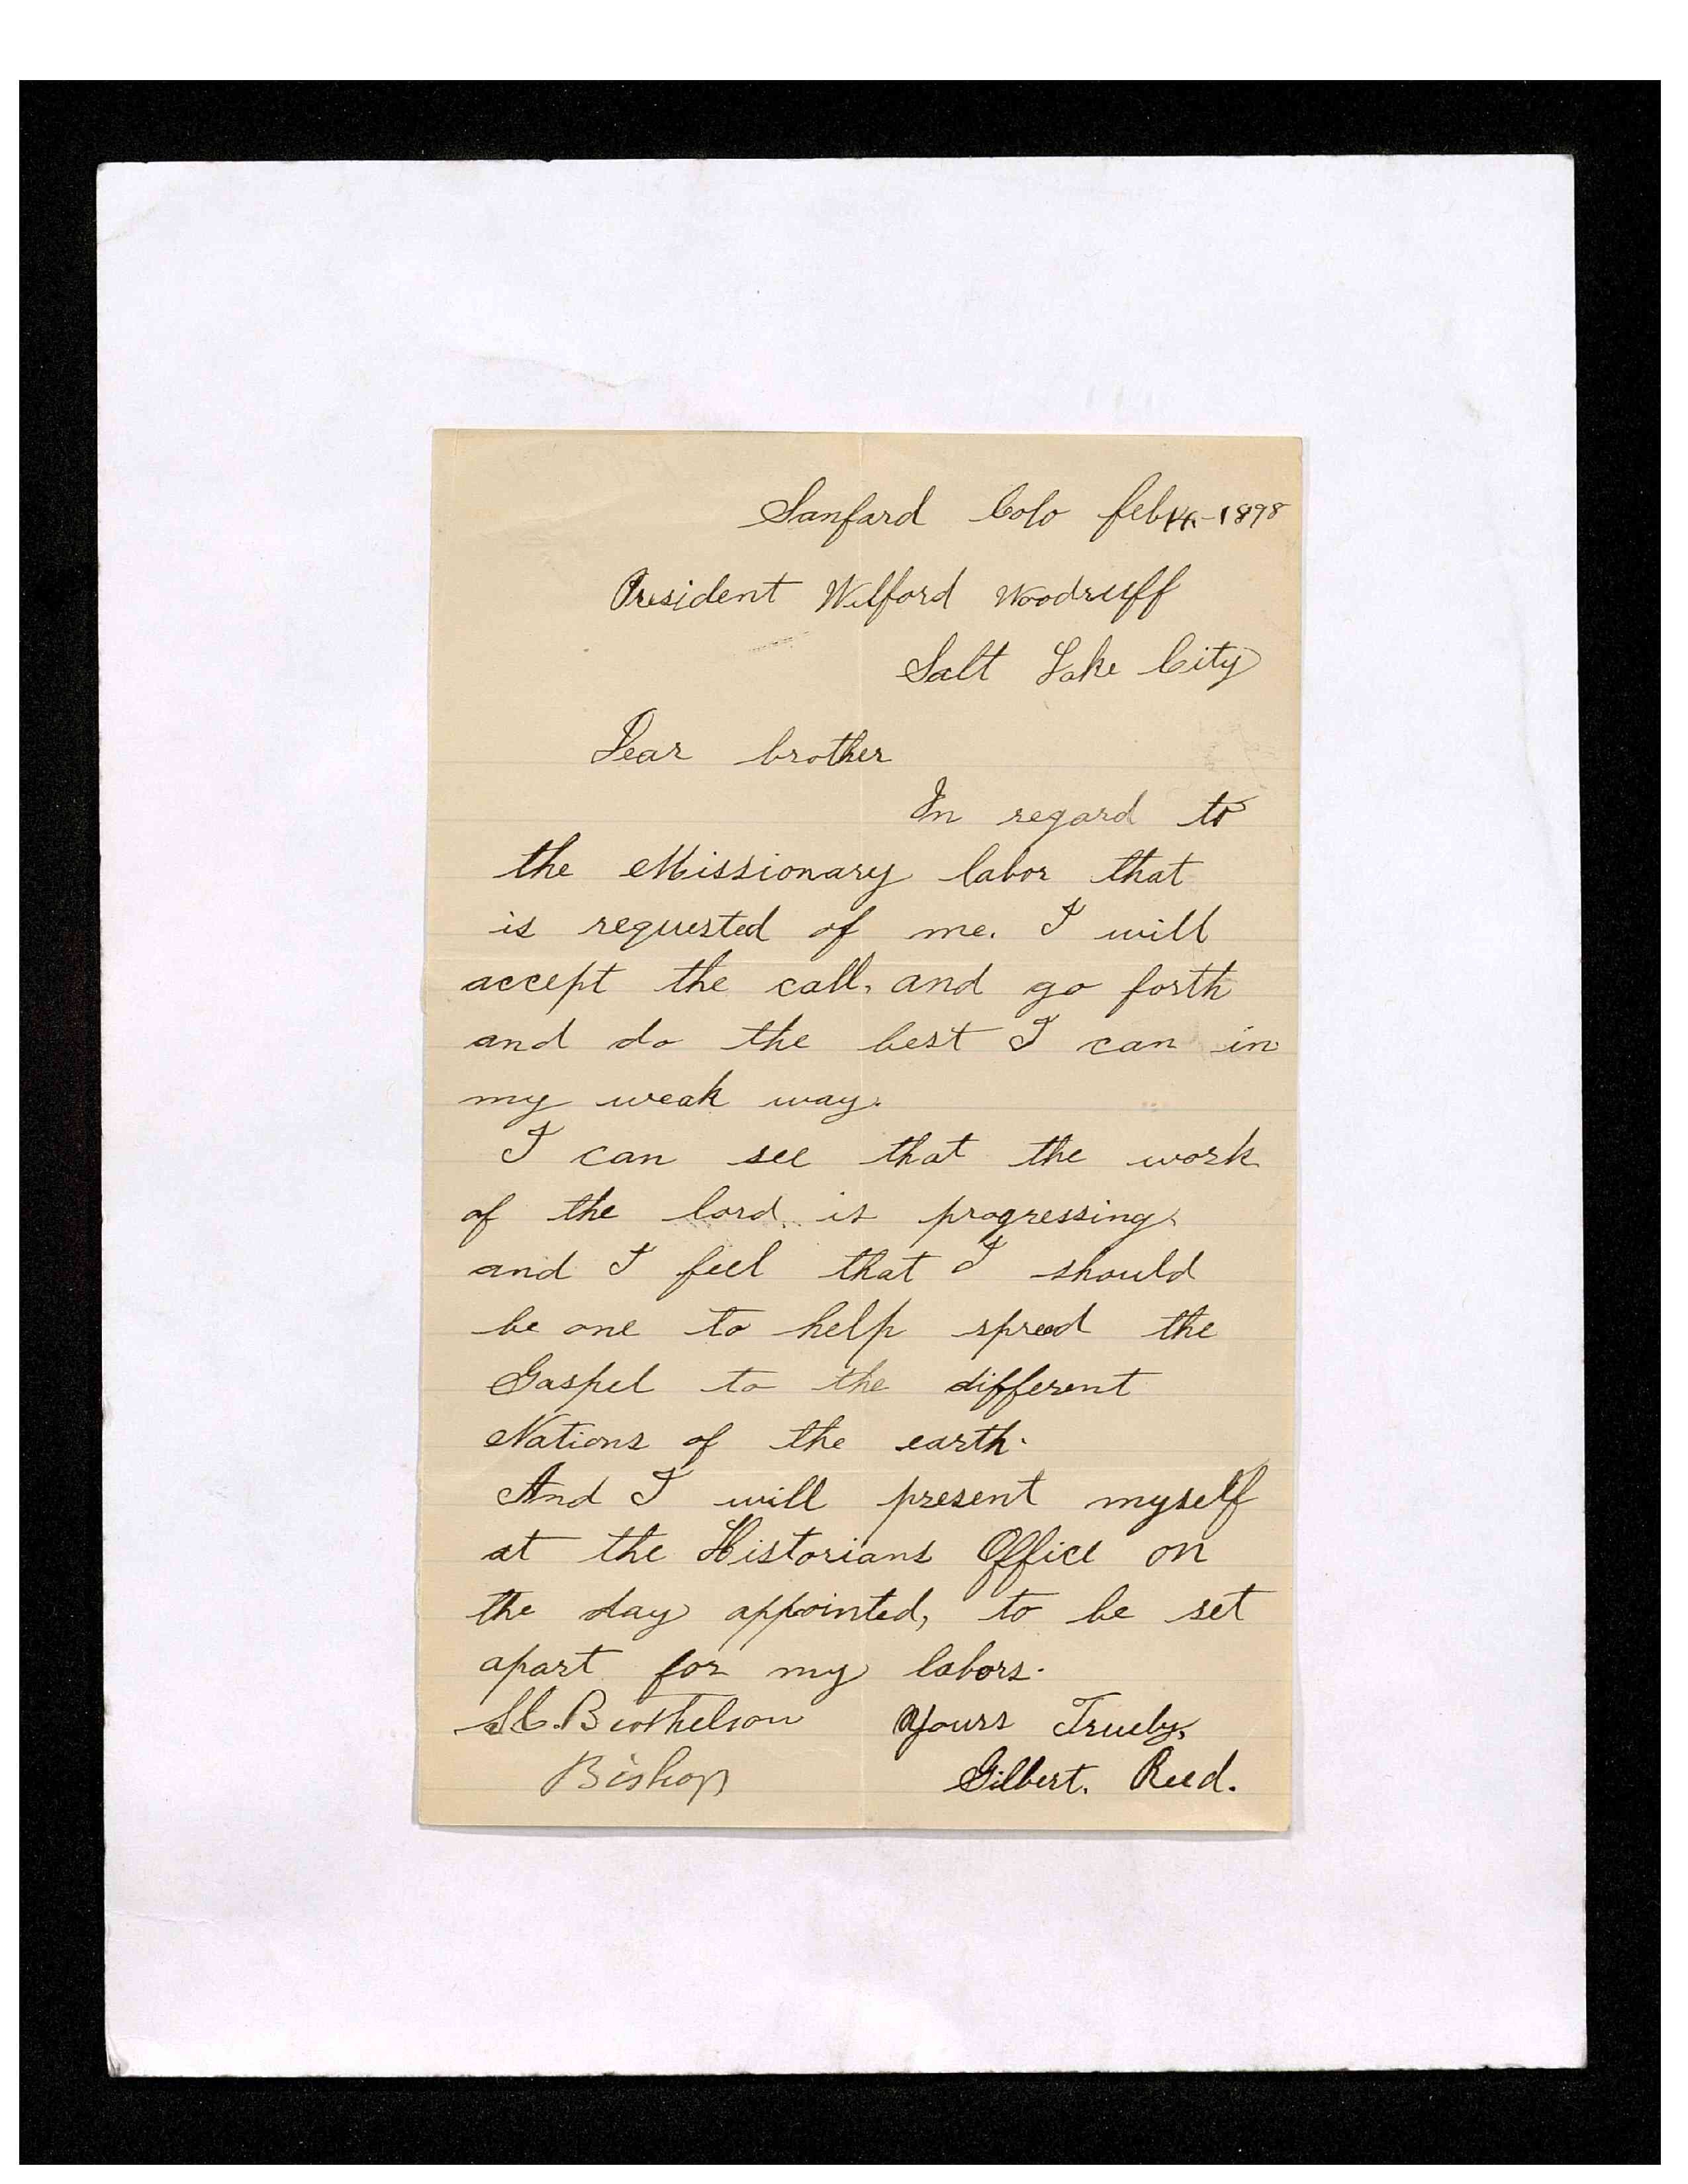 Sanford Colo Feb 14-1898
President Wilford Woodruff
Salt Lake City
Dear brother
In regard to
the Missionary labor that
is requested of me. I will
accept the call, and go forth
and do the best I can in
my weak way.
I can see that the work
of the lord is progressing,
and I feel that I should
be one to help spread the
Gospel to the different
Nations of the earth.
And I will present myself
at the Historians Office on
the day appointed, to be set
apart for my labors.
S. C. Berthelson Yours Truely,
Bishop Gilbert. Reed.